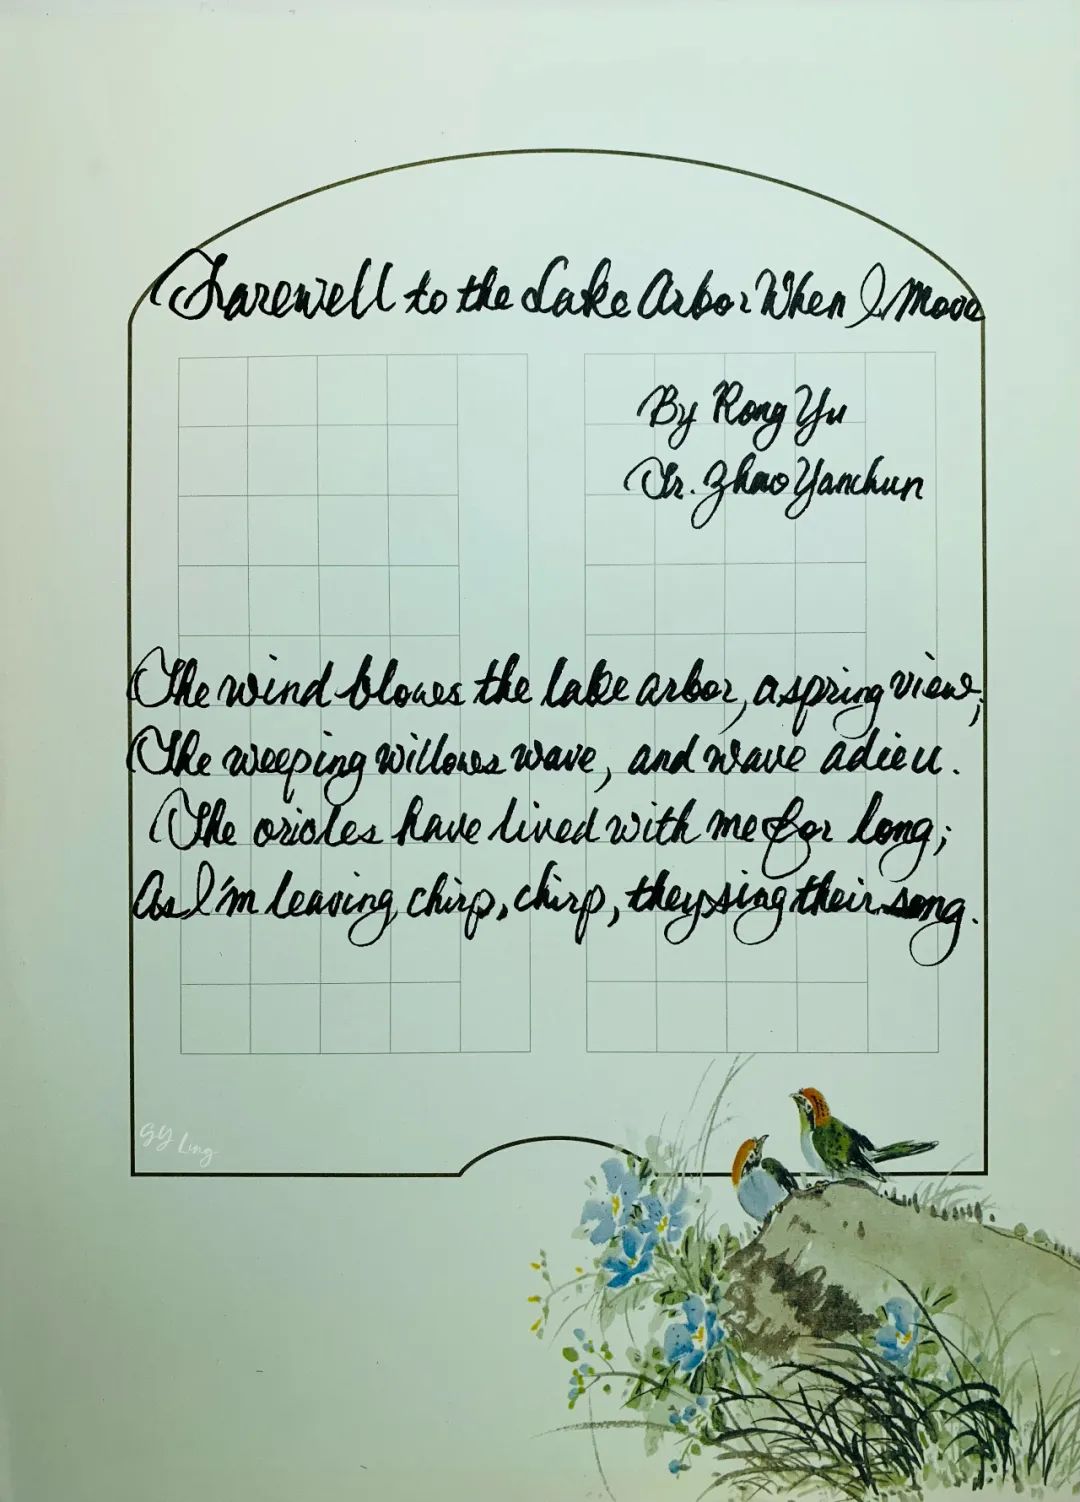 Farewell to the Lake Arbor When I Move
By Rong Yu
Tr. Zhao Yanchun
The wind blows the lake arbor, a spring view;
The weeping willows wave, and wave adieu.
The orioles have lived with me for long;
As I'm leaving chirp, chirp, they sing their song.
GY Ling